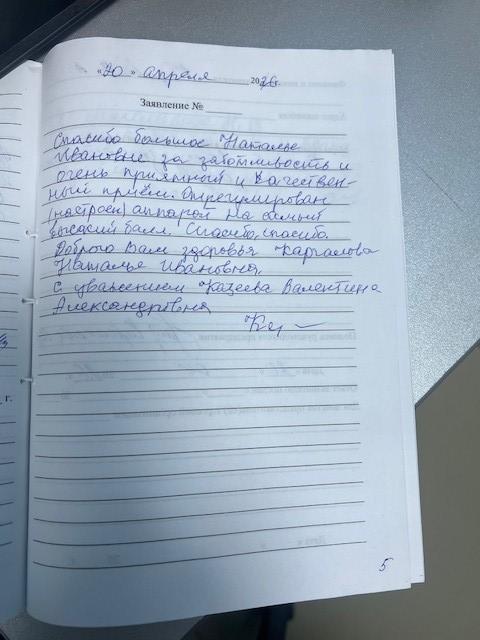 «20» апреля 2026г.
Заявление №
Спасибо большое Наталье
Ивановне за заботливость и
очень приятный и качествен-
ный приём. Отрегулирован
(настроен) аппарат на самый
высокий балл. Спасибо, спасибо.
Доброго Вам здоровья Каргалова
Наталье Ивановня.
С уважением Казеева Валентина
Александровня
5